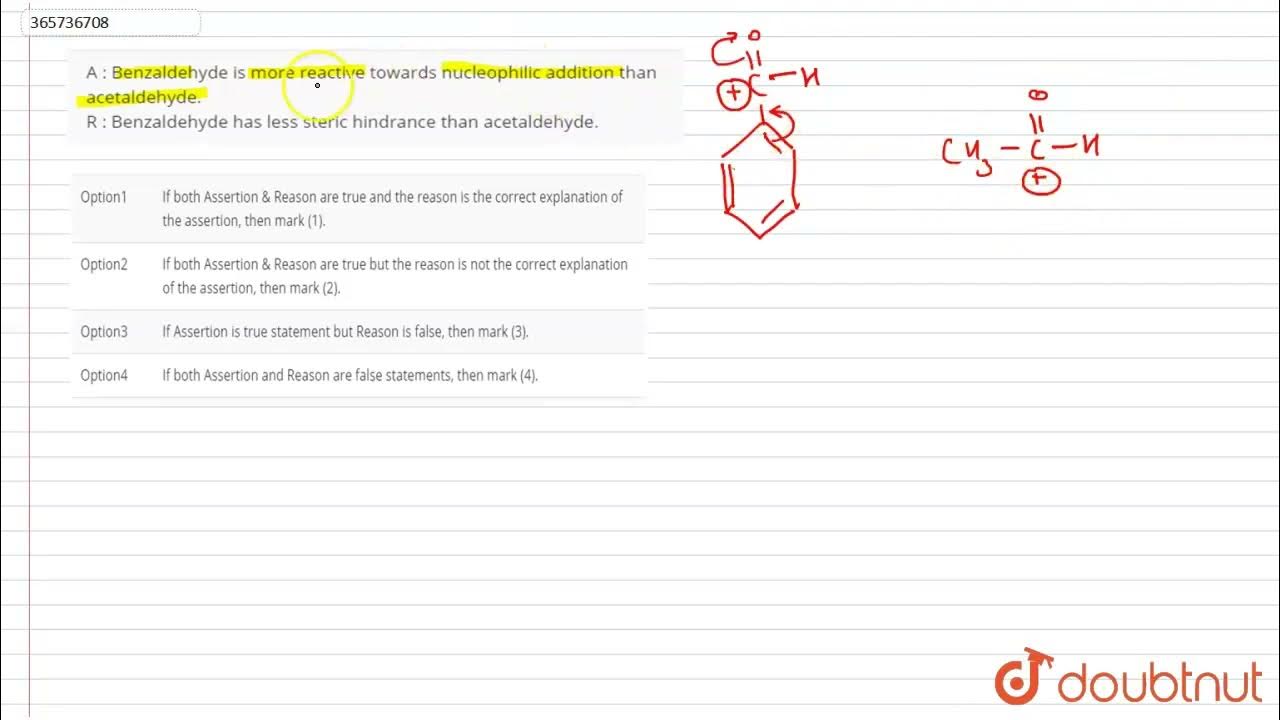 365736708
A : Benzaldehyde is more reactive towards nucleophilic addition than
acetaldehyde.
R : Benzaldehyde has less steric hindrance than acetaldehyde.
Option1 If both Assertion & Reason are true and the reason is the correct explanation of
the assertion, then mark (1).
Option2 If both Assertion & Reason are true but the reason is not the correct explanation
of the assertion, then mark (2).
Option3 If Assertion is true statement but Reason is false, then mark (3).
Option4 If both Assertion and Reason are false statements, then mark (4).
O
+ C - H
O
CH3 - C - H
+
doubtnut